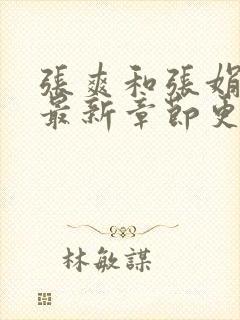 張爽和張娟
最新章節史
林敏謀